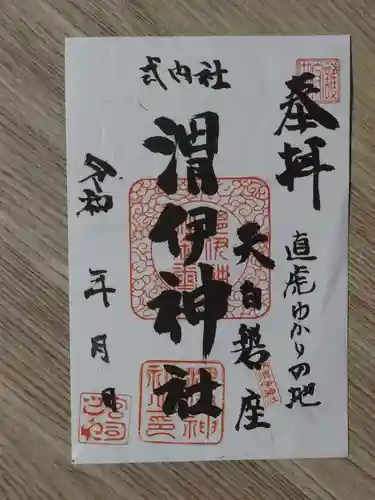 奉拝
直虎ゆかりの地
天白磐座
式内社
渭伊神社
令和
年月日